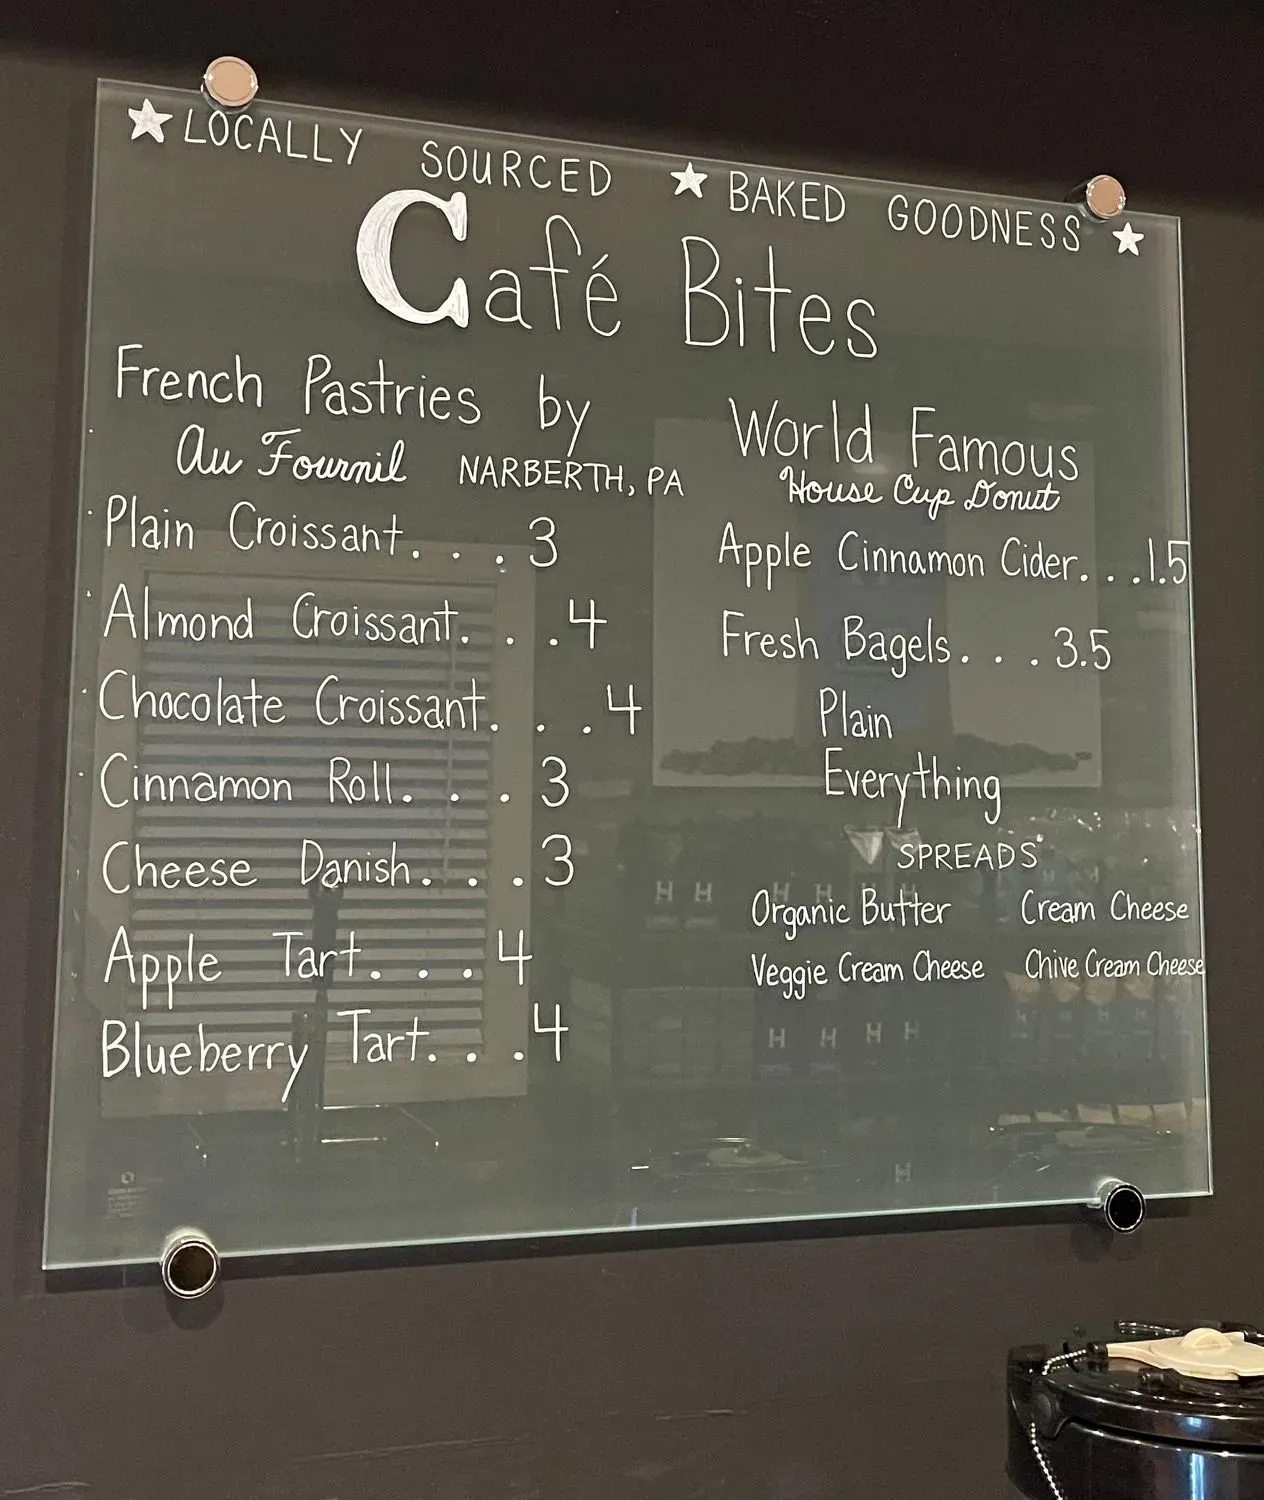 ★ LOCALLY SOURCED ★ BAKED GOODNESS ★
Café Bites
French Pastries by
Au Fournil NARBERTH, PA
Plain Croissant. . . 3
Almond Croissant. . . 4
Chocolate Croissant. . . 4
Cinnamon Roll. . . 3
Cheese Danish. . . 3
Apple Tart. . . 4
Blueberry Tart. . . 4
World Famous
House Cup Donut
Apple Cinnamon Cider. . .1.5
Fresh Bagels. . . 3.5
Plain
Everything
SPREADS
Organic Butter Cream Cheese
Veggie Cream Cheese Chive Cream Cheese